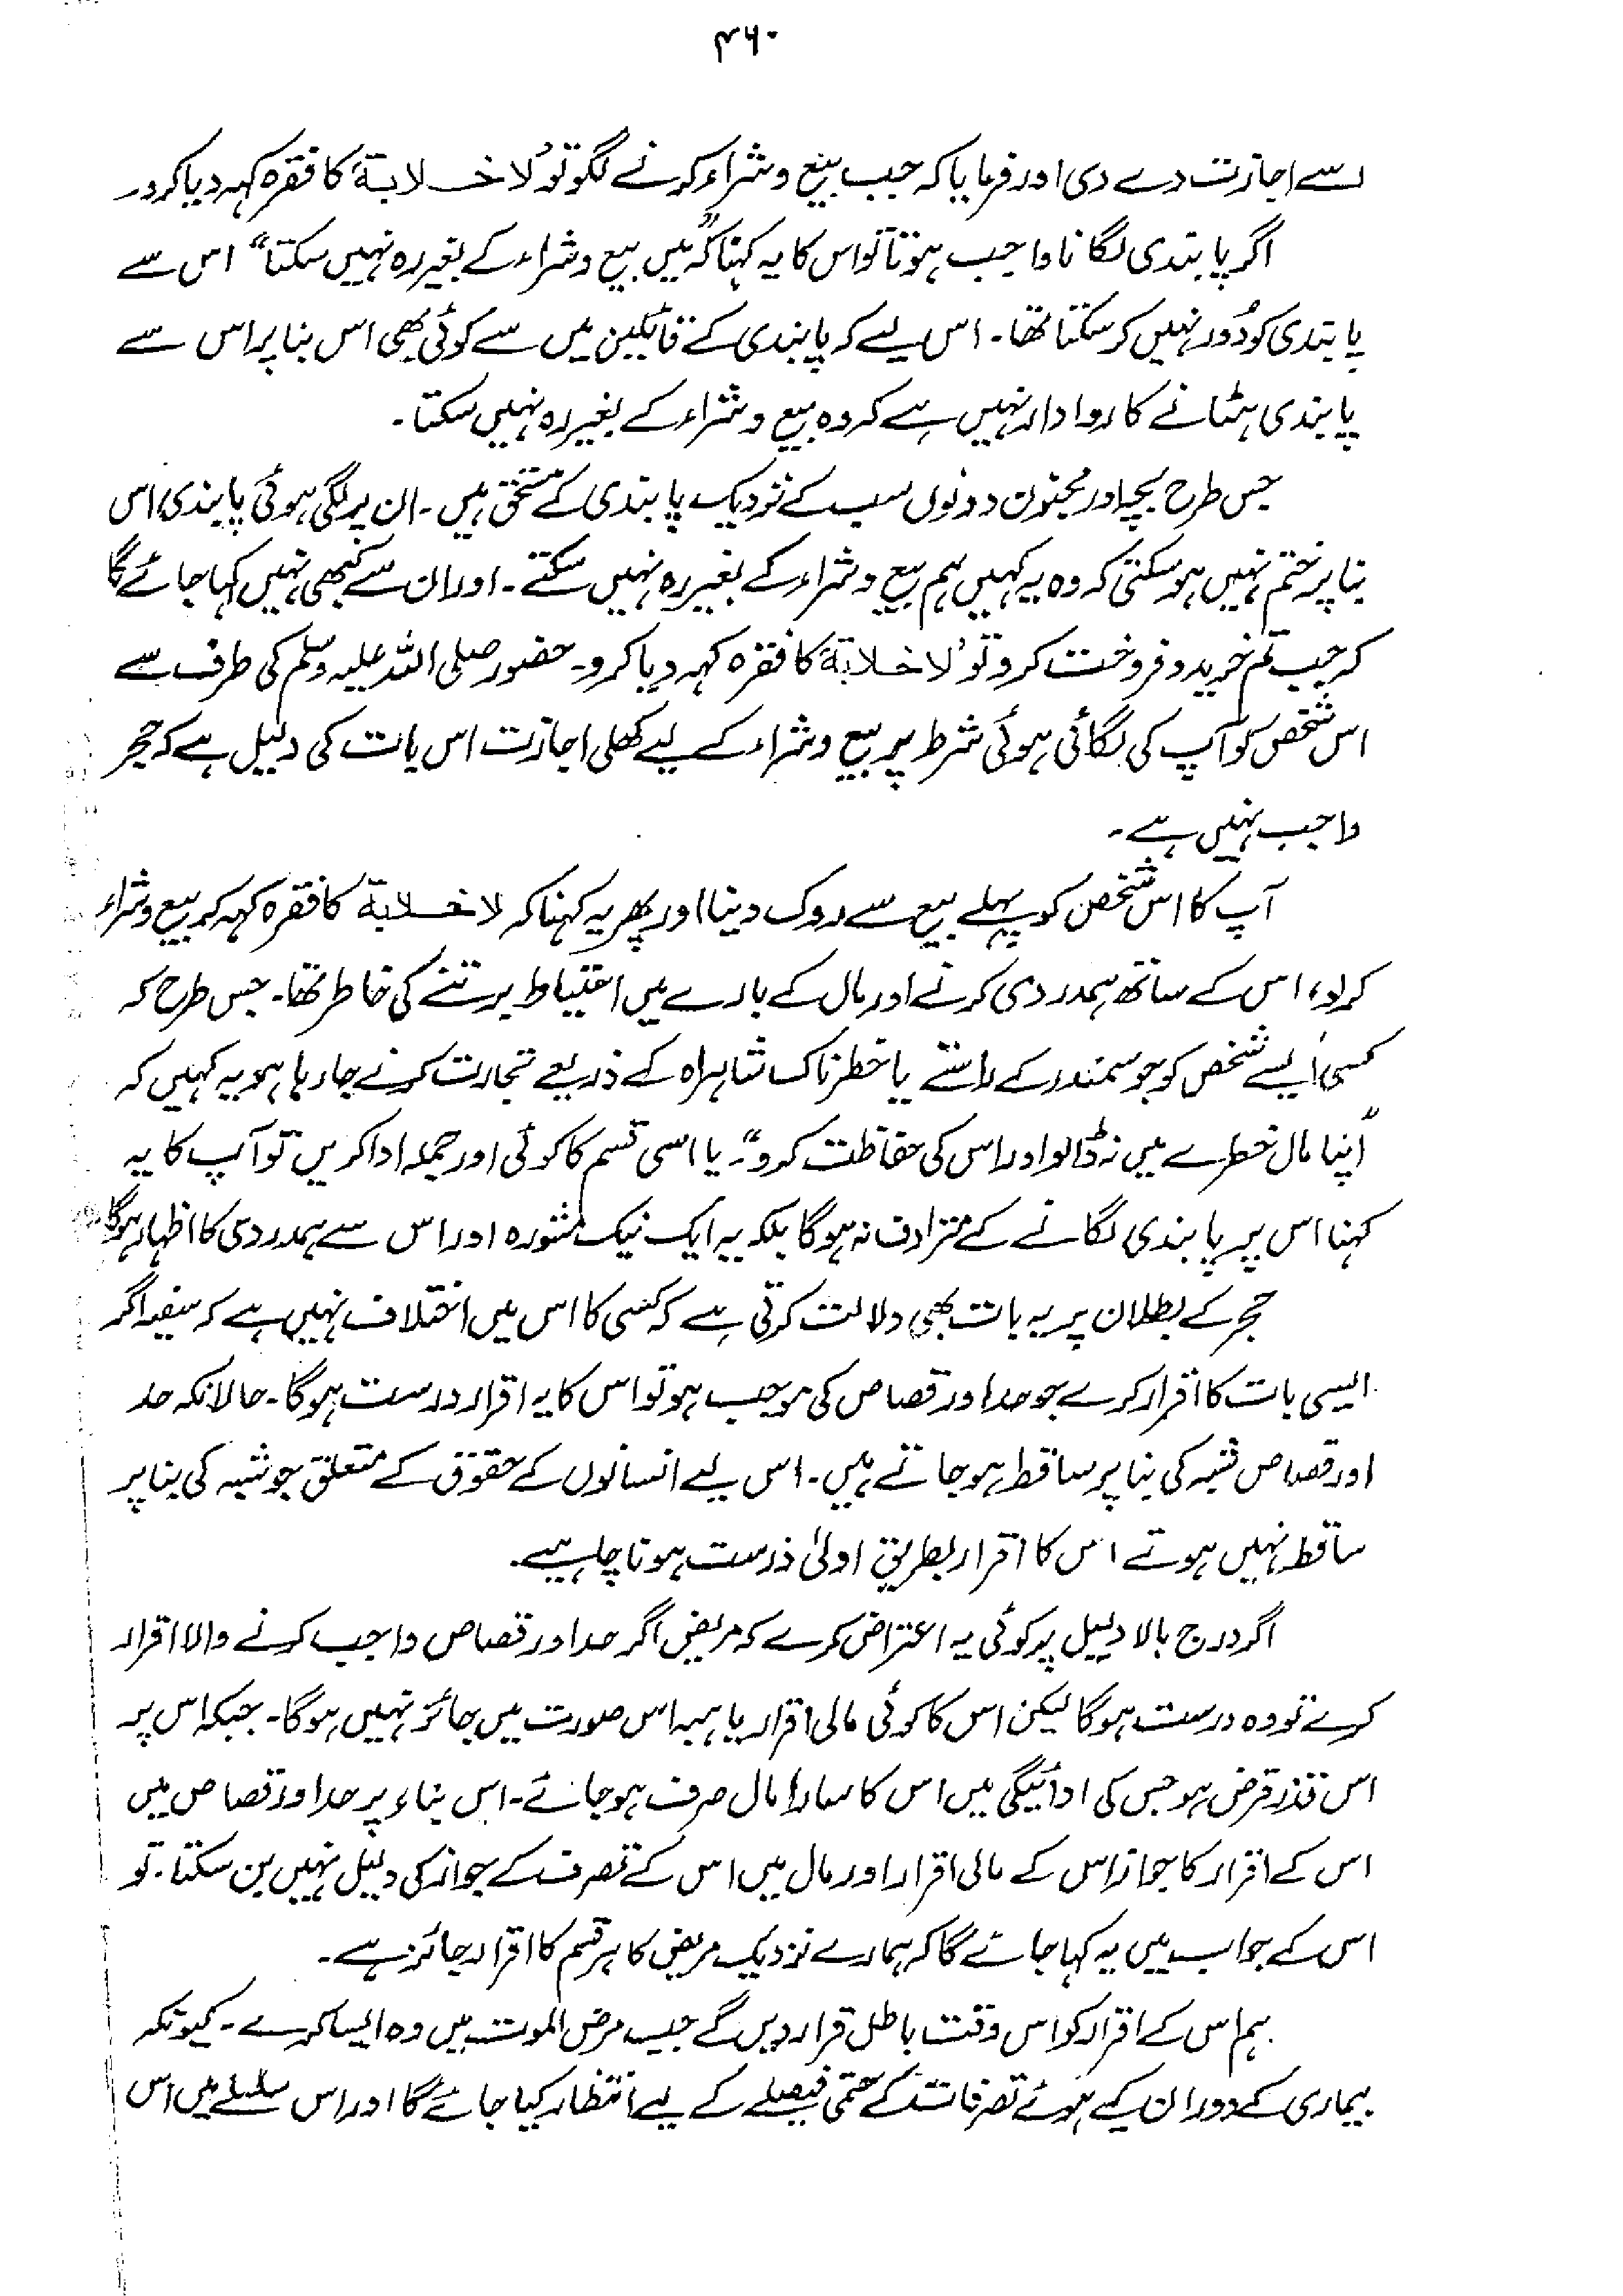 ۴۶۰
اسے اجازت دے دی اور فرمایا کہ جب بیع و شراء کرنے لگو تو 'لا خلابة' کا فقرہ کہہ دیا کرو۔
اگر پابندی لگانا واجب ہوتا تو اس کا یہ کہنا کہ "میں بیع و شراء کے بغیر رہ نہیں سکتا" اس سے
پابندی کو دُور نہیں کر سکتا تھا۔ اس لیے کہ پابندی کے قائلین میں سے کوئی بھی اس بنا پر اس سے
پابندی ہٹانے کا روادار نہیں ہے کہ وہ بیع و شراء کے بغیر رہ نہیں سکتا۔
جس طرح بچہ اور مجنون دونوں سب کے نزدیک پابندی کے مستحق ہیں۔ ان پر لگی ہوئی پابندی اس
بنا پر ختم نہیں ہو سکتی کہ وہ یہ کہیں ہم بیع و شراء کے بغیر رہ نہیں سکتے۔ اور ان سے کبھی نہیں کہا جائے گا
کہ جب تم خرید و فروخت کرو تو 'لا خلابة' کا فقرہ کہہ دیا کرو۔ حضور صلی اللہ علیہ وسلم کی طرف سے
اس شخص کو آپ کی لگائی ہوئی شرط پر بیع و شراء کے لیے کھلی اجازت اس بات کی دلیل ہے کہ حجر
واجب نہیں ہے۔
آپ کا اس شخص کو پہلے بیع سے روک دینا اور پھر یہ کہنا کہ لا خلابة کا فقرہ کہہ کر بیع و شراء
کر لو، اس کے ساتھ ہمدردی کرنے اور مال کے بارے میں احتیاط برتنے کی خاطر تھا۔ جس طرح کہ
کسی ایسے شخص کو جو سمندر کے راستے یا خطرناک شاہراہ کے ذریعے تجارت کرنے جا رہا ہو یہ کہیں کہ
"اپنا مال خطرے میں نہ ڈالو اور اس کی حفاظت کرو"۔ یا اسی قسم کا کوئی اور جملہ ادا کریں تو آپ کا یہ
کہنا اس پر پابندی لگانے کے مترادف نہ ہوگا بلکہ یہ ایک نیک مشورہ اور اس سے ہمدردی کا اظہار ہوگا
حجر کے بطلان پر یہ بات بھی دلالت کرتی ہے کہ کسی کا اس میں اختلاف نہیں ہے کہ سفیہ اگر
ایسی بات کا اقرار کرے جو حد اور قصاص کی موجب ہو تو اس کا یہ اقرار درست ہوگا۔ حالانکہ حد
اور قصاص شبہ کی بنا پر ساقط ہو جاتے ہیں۔ اس لیے انسانوں کے حقوق کے متعلق جو شبہ کی بنا پر
ساقط نہیں ہوتے اس کا اقرار بطریق اولیٰ درست ہونا چاہیے۔
اگر درج بالا دلیل پر کوئی یہ اعتراض کرے کہ مریض اگر حد اور قصاص واجب کرنے والا اقرار
کرے تو وہ درست ہوگا لیکن اس کا کوئی مالی اقرار یا ہبہ اس صورت میں جائز نہیں ہوگا۔ جبکہ اس پر
اس قدر قرض ہو جس کی ادائیگی میں اس کا سارا مال صرف ہو جائے۔ اس بناء پر حد اور قصاص میں
اس کے اقرار کا جواز اس کے مالی اقرار اور مال میں اس کے تصرف کے جواز کی دلیل نہیں بن سکتا۔ تو
اس کے جواب میں یہ کہا جائے گا کہ ہمارے نزدیک مریض کا ہر قسم کا اقرار جائز ہے۔
ہم اس کے اقرار کو اس وقت باطل قرار دیں گے جب مرض الموت میں وہ ایسا کرے۔ کیونکہ
بیماری کے دوران کیے ہوئے تصرفات کے حتمی فیصلے کے لیے انتظار کیا جائے گا اور اس سلسلے میں اس